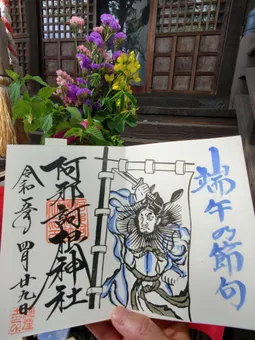 端午の節句
阿那訶根神社
令和五年四月廿九日